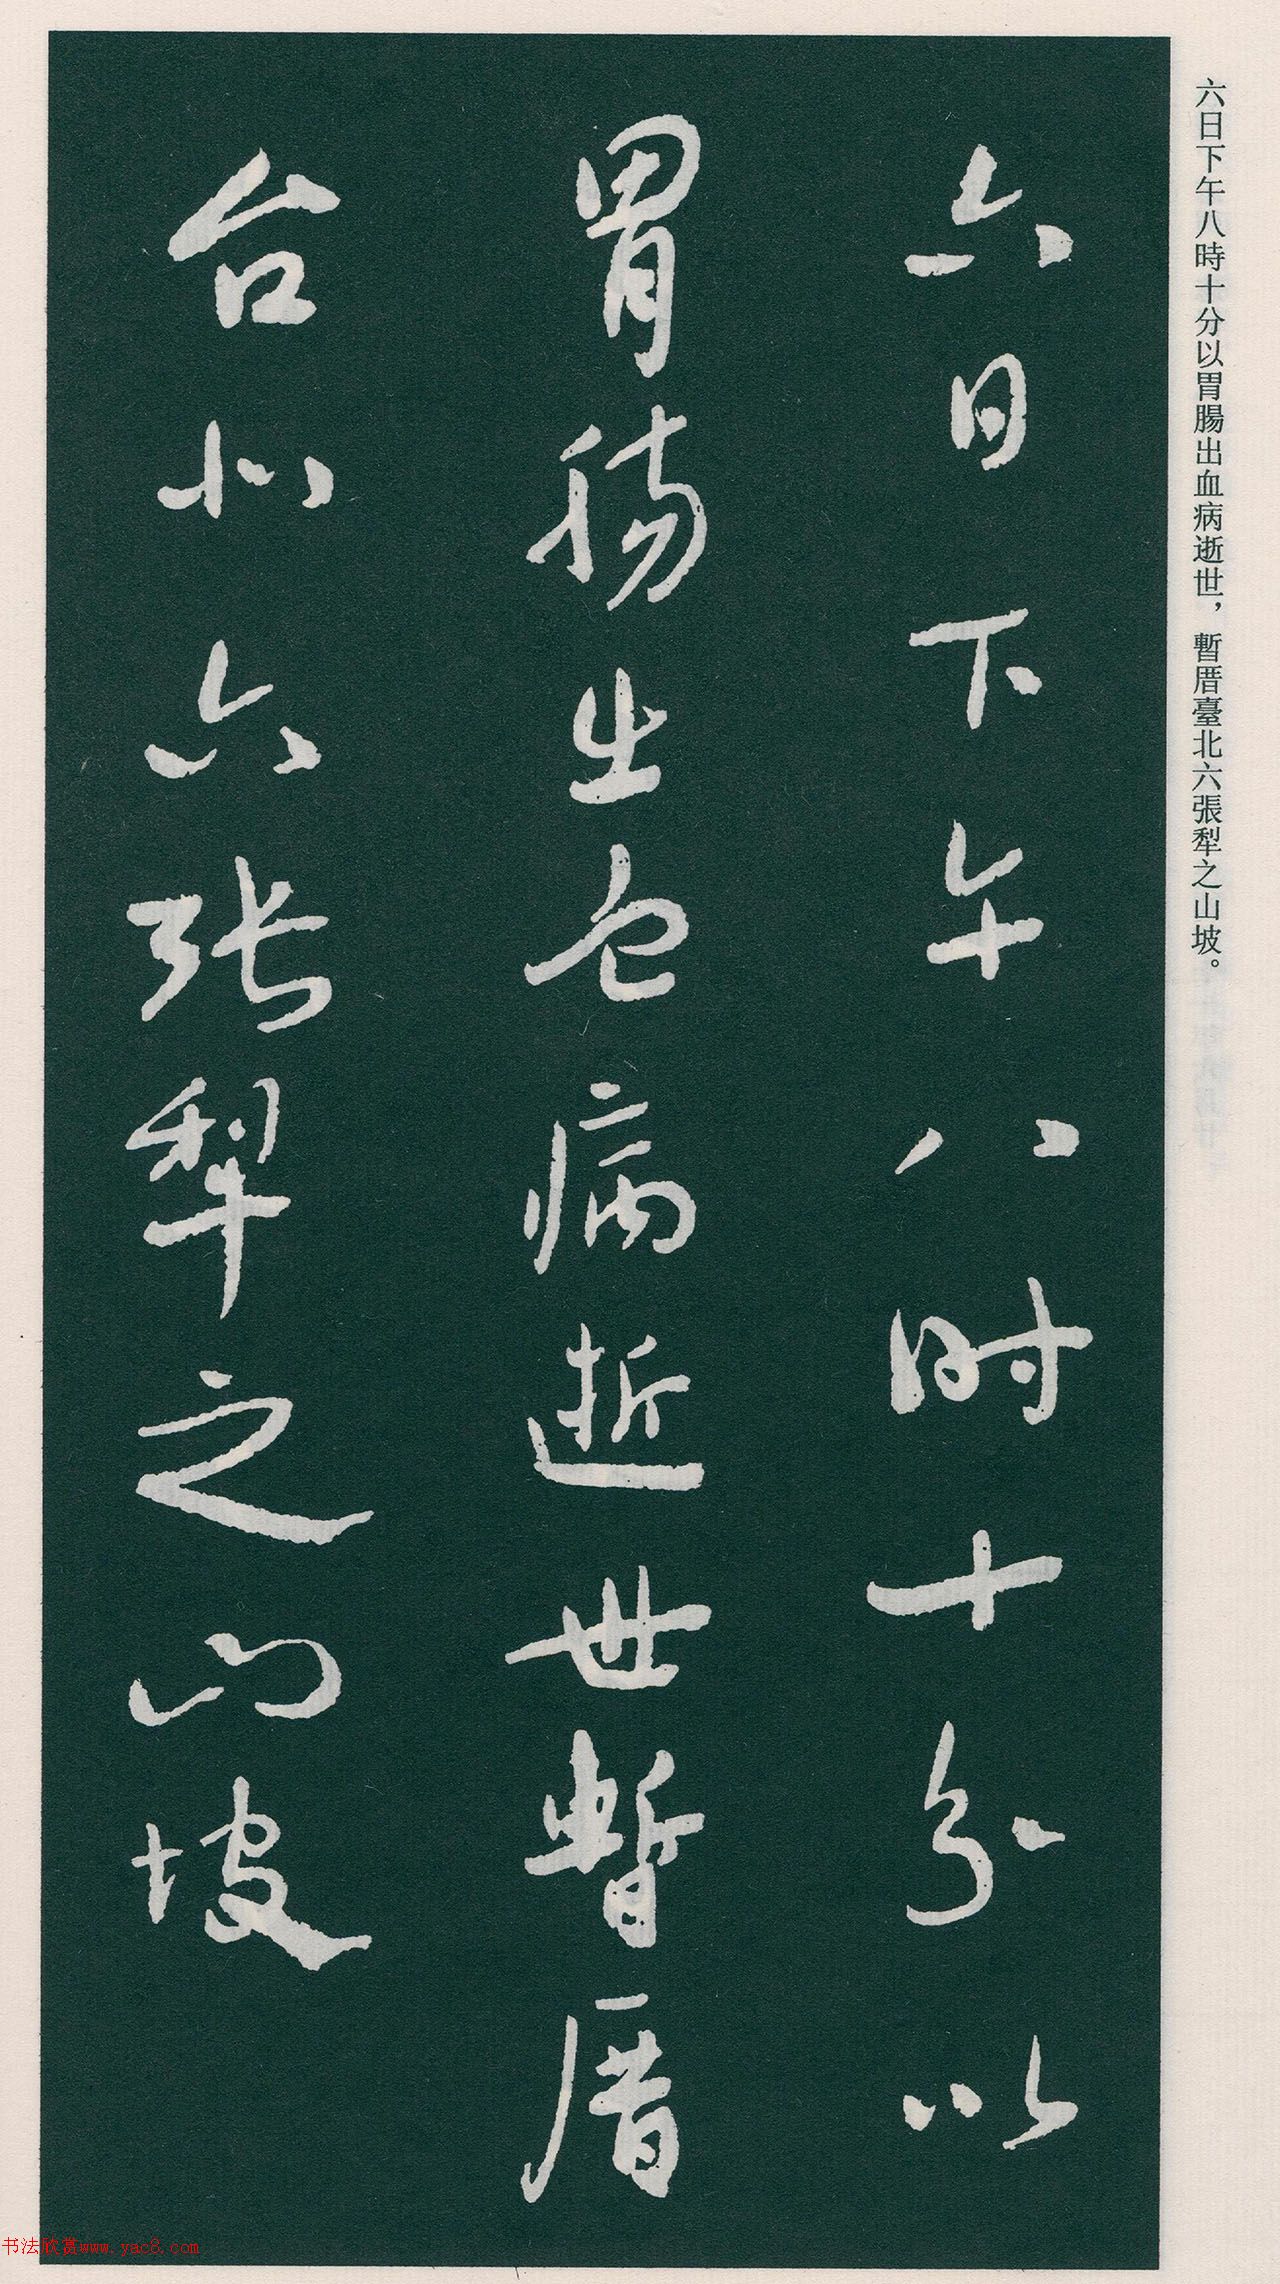 六日下午八時十分以胃腸出血病逝世，暫厝臺北六張犁之山坡。
六日下午八时十分以
胃腸出血病逝世暫厝
台北六张犁之山坡
书法欣赏www.yac8.com